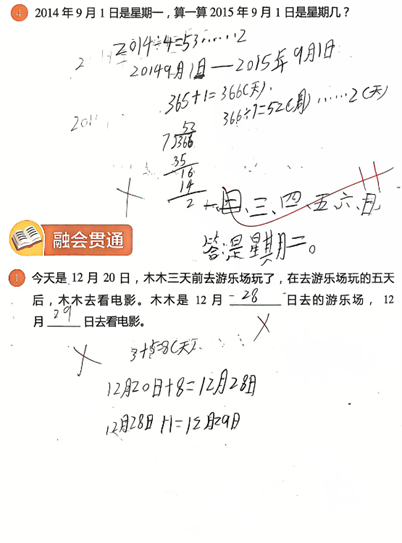 4 2014年9月1日是星期一，算一算2015年9月1日是星期几？
2014÷4=53……2
2014年9月1日—2015年9月1日
365+1=366(天)
366÷7=52(周)……2(天)
52
7 366
35
16
14
2
一、二、三、四、五、六、日
答:是星期二。
融会贯通
1 今天是12月20日，木木三天前去游乐场玩了，在去游乐场玩的五天
后，木木去看电影。木木是12月 28 日去的游乐场，12
月 29 日去看电影。
3+5=8(天)
12月20日+8=12月28日
12月28日+1=12月29日